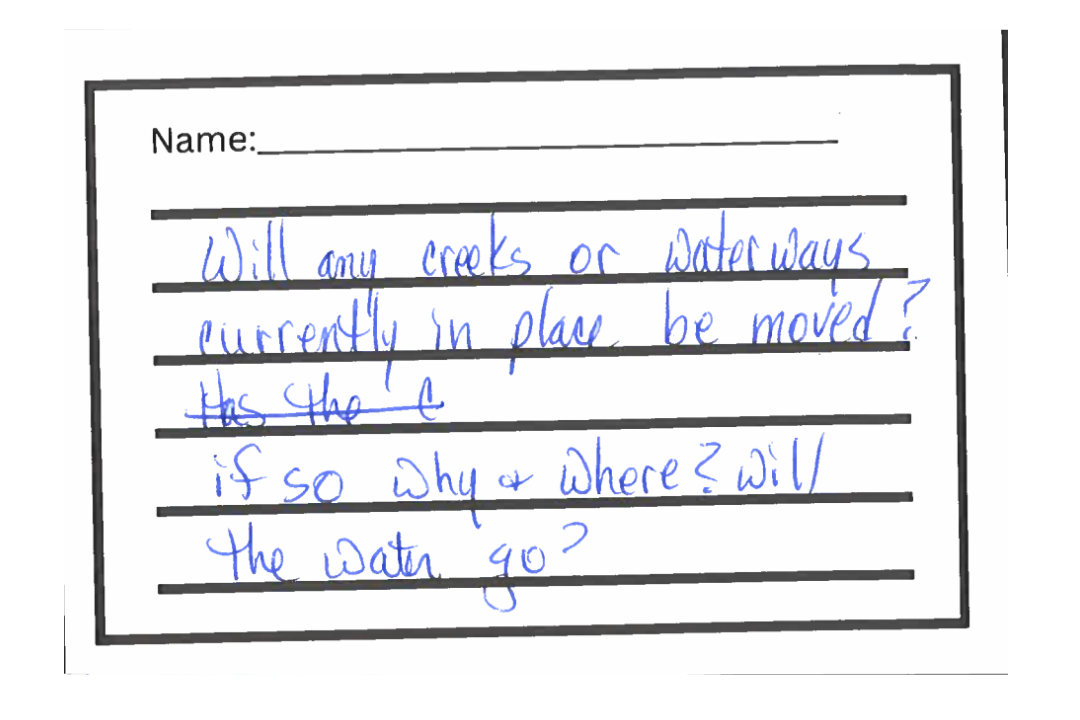 Name:
Will any creeks or waterways
currently in place be moved?
Has the c
if so why & where? will
the water go?